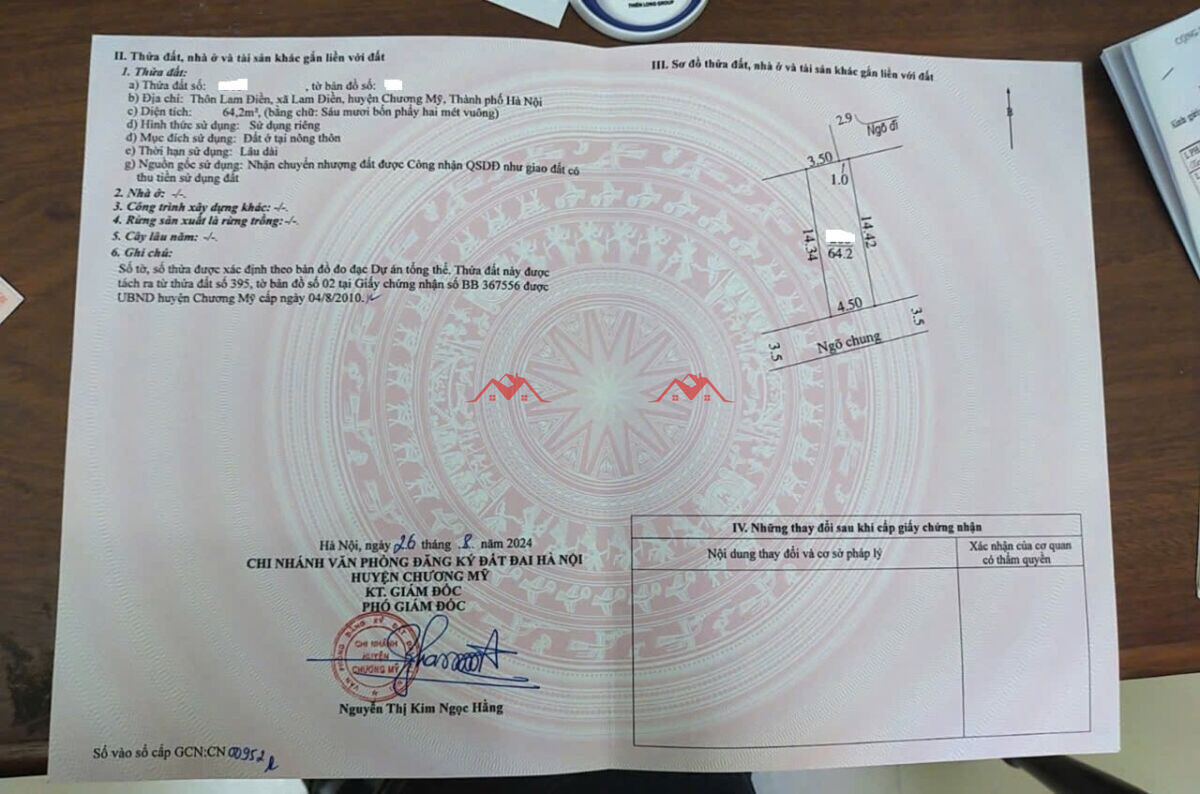 THIÊN LONG GROUP
II. Thửa đất, nhà ở và tài sản khác gắn liền với đất
1. Thửa đất:
a) Thửa đất số: , tờ bản đồ số:
b) Địa chỉ: Thôn Lam Điền, xã Lam Điền, huyện Chương Mỹ, Thành phố Hà Nội
c) Diện tích: 64,2m², (bằng chữ: Sáu mươi bốn phẩy hai mét vuông)
d) Hình thức sử dụng: Sử dụng riêng
đ) Mục đích sử dụng: Đất ở tại nông thôn
e) Thời hạn sử dụng: Lâu dài
g) Nguồn gốc sử dụng: Nhận chuyển nhượng đất được Công nhận QSDĐ như giao đất có
thu tiền sử dụng đất
2. Nhà ở: -/-.
3. Công trình xây dựng khác: -/-.
4. Rừng sản xuất là rừng trồng: -/-.
5. Cây lâu năm: -/-.
6. Ghi chú:
Số tờ, số thửa được xác định theo bản đồ đo đạc Dự án tổng thể. Thửa đất này được
tách ra từ thửa đất số 395, tờ bản đồ số 02 tại Giấy chứng nhận số BB 367556 được
UBND huyện Chương Mỹ cấp ngày 04/8/2010.
Hà Nội, ngày 26 tháng 8 năm 2024
CHI NHÁNH VĂN PHÒNG ĐĂNG KÝ ĐẤT ĐAI HÀ NỘI
HUYỆN CHƯƠNG MỸ
KT. GIÁM ĐỐC
PHÓ GIÁM ĐỐC
CHI NHÁNH
HUYỆN
CHƯƠNG MỸ
Nguyễn Thị Kim Ngọc Hằng
Số vào sổ cấp GCN:CN 00952
III. Sơ đồ thửa đất, nhà ở và tài sản khác gắn liền với đất
B
2.9
Ngõ đi
3.50
1.0
14.34
14.42
64.2
4.50
3.5
3.5
Ngõ chung
IV. Những thay đổi sau khi cấp giấy chứng nhận
Nội dung thay đổi và cơ sở pháp lý
Xác nhận của cơ quan
có thẩm quyền